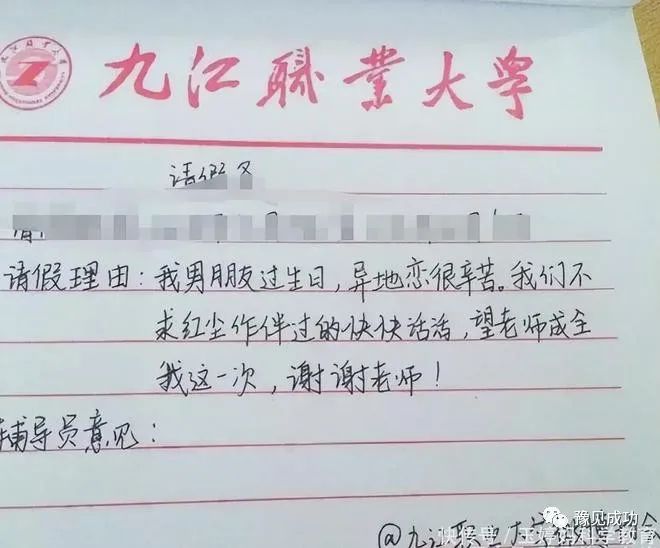 九江職業大学
请假条
请假理由：我男朋友过生日，异地恋很辛苦。我们不
求红尘作伴过的快快活活，望老师成全
我这一次，谢谢老师！
辅导员意见：
豫见成功
快传号/玉婷妈科学教育
@九江职业大学